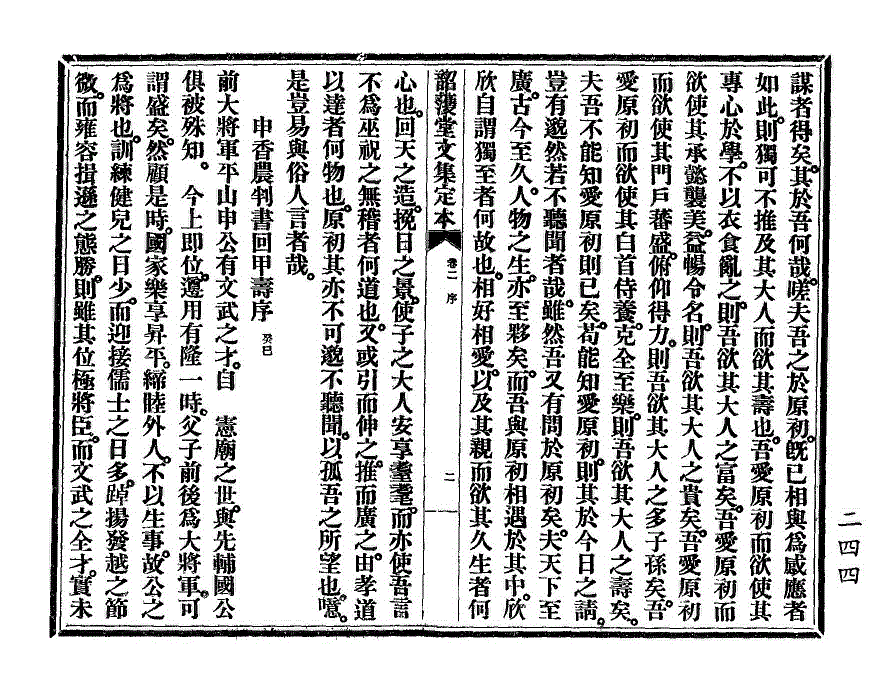 謀者得矣。其於吾何哉。嗟夫吾之於原初。旣已相與爲感應者
如此。則獨可不推及其大人而欲其壽也。吾愛原初而欲使其
專心於學。不以衣食亂之。則吾欲其大人之富矣。吾愛原初而
欲使其承懿襲美。益暢令名。則吾欲其大人之貴矣。吾愛原初
而欲使其門戶蕃盛。俯仰得力。則吾欲其大人之多子孫矣。吾
愛原初而欲使其白首侍養。克全至樂。則吾欲其大人之壽矣。
夫吾不能知愛原初則已矣。苟能知愛原初。則其於今日之請。
豈有邈然若不聽聞者哉。雖然吾又有問於原初矣。夫天下至
廣。古今至久。人物之生。亦至夥矣。而吾與原初相遇於其中。欣
欣自謂獨至者何故也。相好相愛。以及其親而欲其久生者何
韶濩堂文集定本
卷二 序
二
心也。回天之造。挽日之景。使子之大人安享耋耄。而亦使吾言
不爲巫祝之無稽者何道也。又或引而伸之。推而廣之。由孝道
以達者何物也。原初其亦不可邈不聽聞。以孤吾之所望也。噫。
是豈易與俗人言者哉。
申香農判書回甲壽序 癸巳
前大將軍平山申公有文武之才。自 憲廟之世。與先輔國公
俱被殊知。 今上即位。遵用有隆一時。父子前後爲大將軍。可
謂盛矣。然顧是時。國家樂享昇平。締睦外人。不以生事。故公之
爲將也。訓練健兒之日少。而迎接儒士之日多。踔揚發越之節
微。而雍容揖遜之態勝。則雖其位極將臣。而文武之全才。實未
二四四